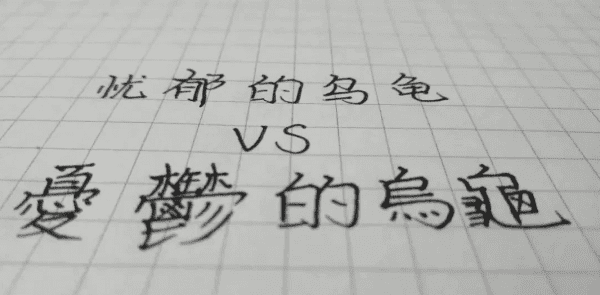 忧郁的乌龟
VS
憂鬱的烏龜